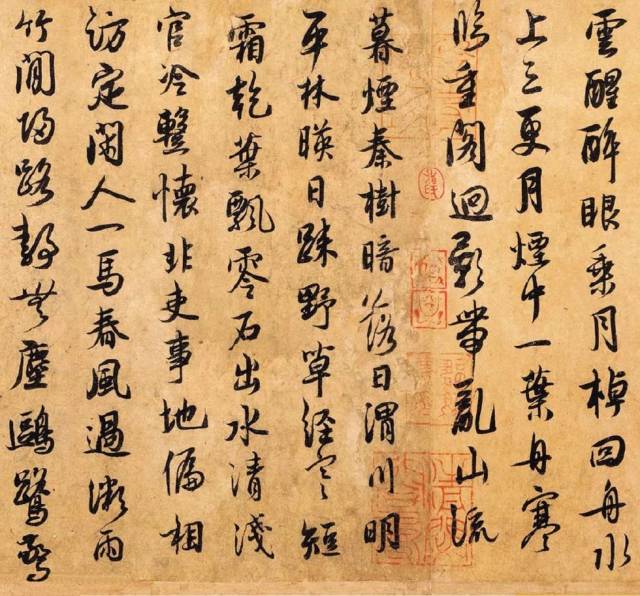 雲醒醉眼乘月棹回舟水
上三更月煙中一葉舟寒
重閣迥影帶亂山流
暮煙秦樹暗落日渭川明
平林暎日踈野草經寒短
霜乾葉飄零石出水清淺
官冷整懷非吏事地偏相
訪定閑人一馬春風過微雨
竹間歸路靜無塵鷗